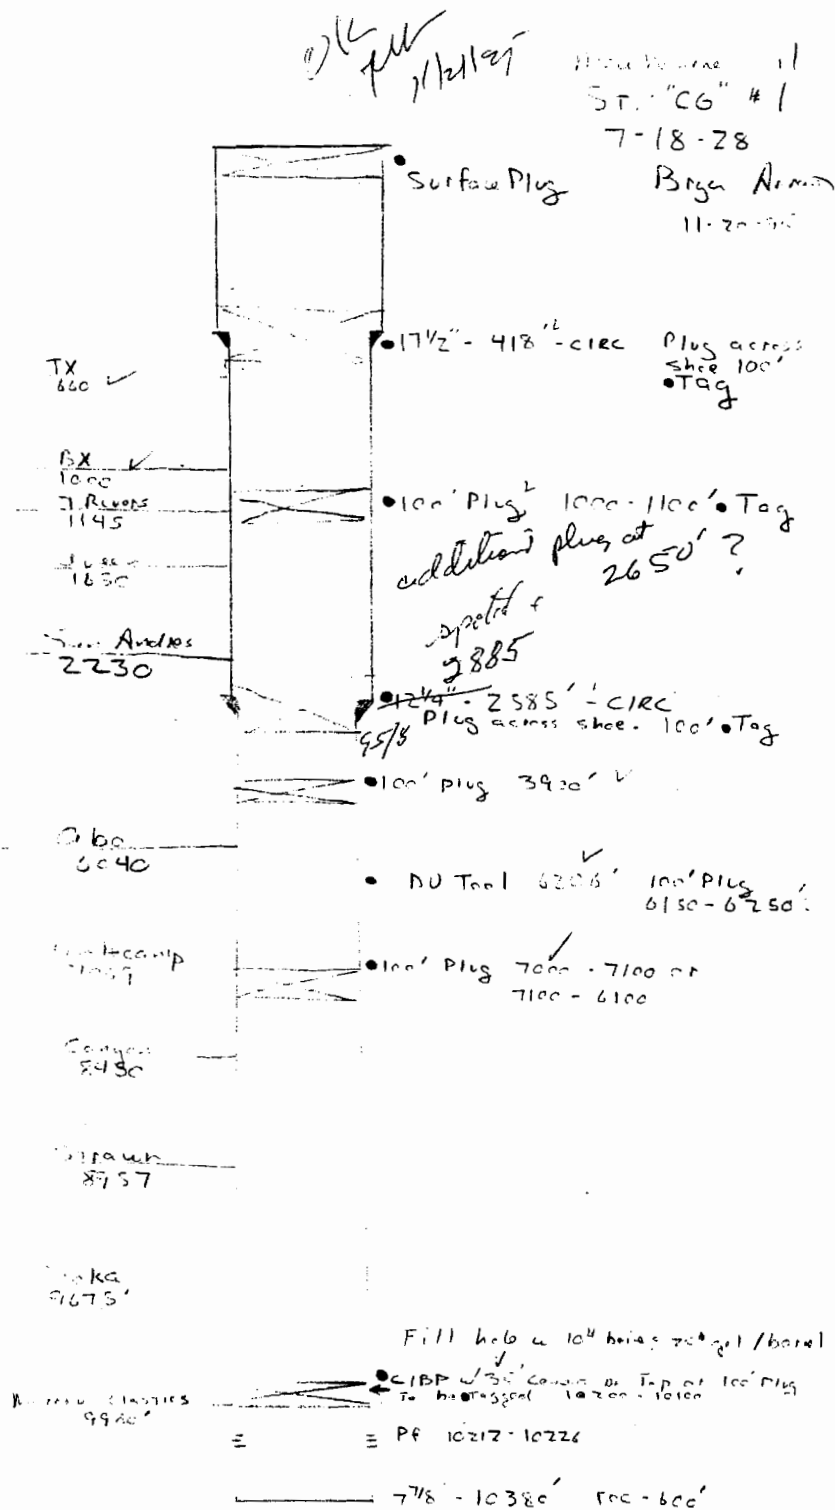 OK
11/21/95
ST. "CG" #1
7-18-28
Bryan
11-20-95
Surface Plug
17 1/2" - 418' - CIRC Plug across
shoe 100'
Tag
TX
660
BX
1000
7 Rivers
1145
100' Plug 1000-1100' Tag
additional plug at
2650' ?
2885
San Andres
2230
12 1/4" - 2585' - CIRC
Plug across shoe. 100' Tag
9 5/8
100' Plug 3920'
Abo
6040
DV Tool 6206' 100' Plug
6150-6250'
Wolfcamp
100' Plug 7000-7100 or
7100-6100
Canyon
8430
Strawn
8957
9675'
Fill hole w 10# brine gel/barrel
CIBP w/35' on Top or 100' Plug
To be Tagged 10200-10100
Morrow Clastics
Pf 10212-10226
7 7/8 - 10380' TOC-600'